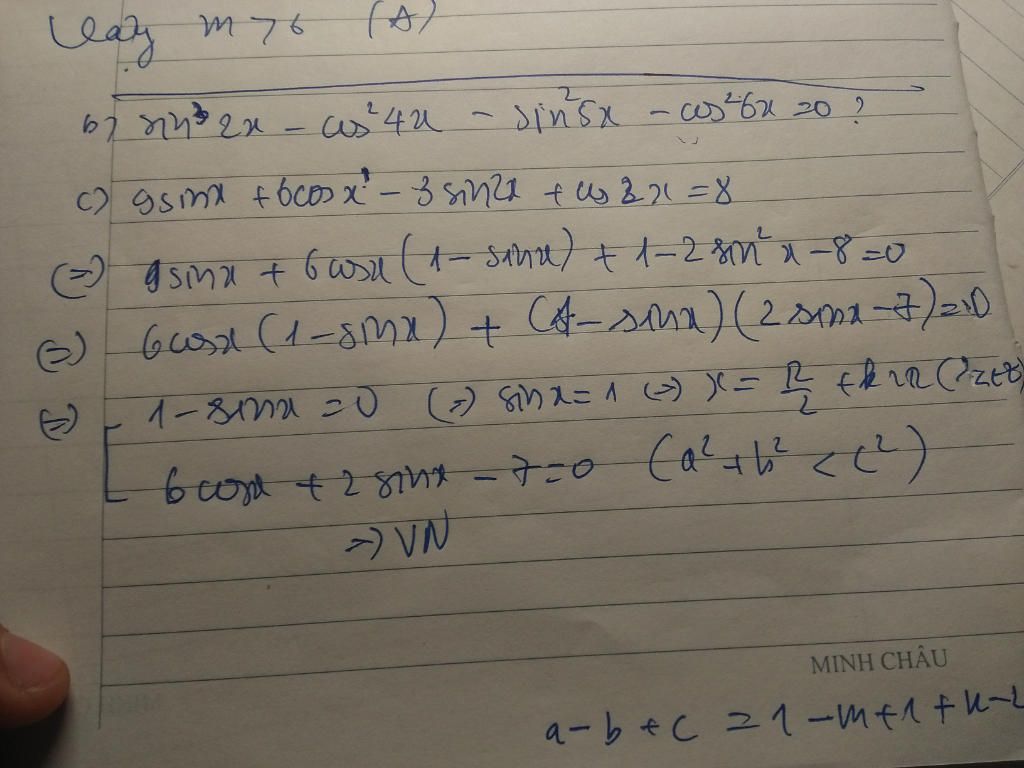 Vậy m > 6 (A)
b) sin³2x - cos²4x - sin²5x - cos²6x = 0 ?
c) 9sinx + 6cosx - 3sin2x + cos2x = 8
(=) 9sinx + 6cosx (1 - sinx) + 1 - 2sin²x - 8 = 0
(=) 6cosx (1 - sinx) + (1 - sinx)(2sinx - 7) = 0
(=) [ 1 - sinx = 0 (=) sinx = 1 (=) x = π/2 + k2π
6cosx + 2sinx - 7 = 0 (a² + b² < c²)
=> VN
MINH CHÂU
a - b + c = 1 - m + 1 +